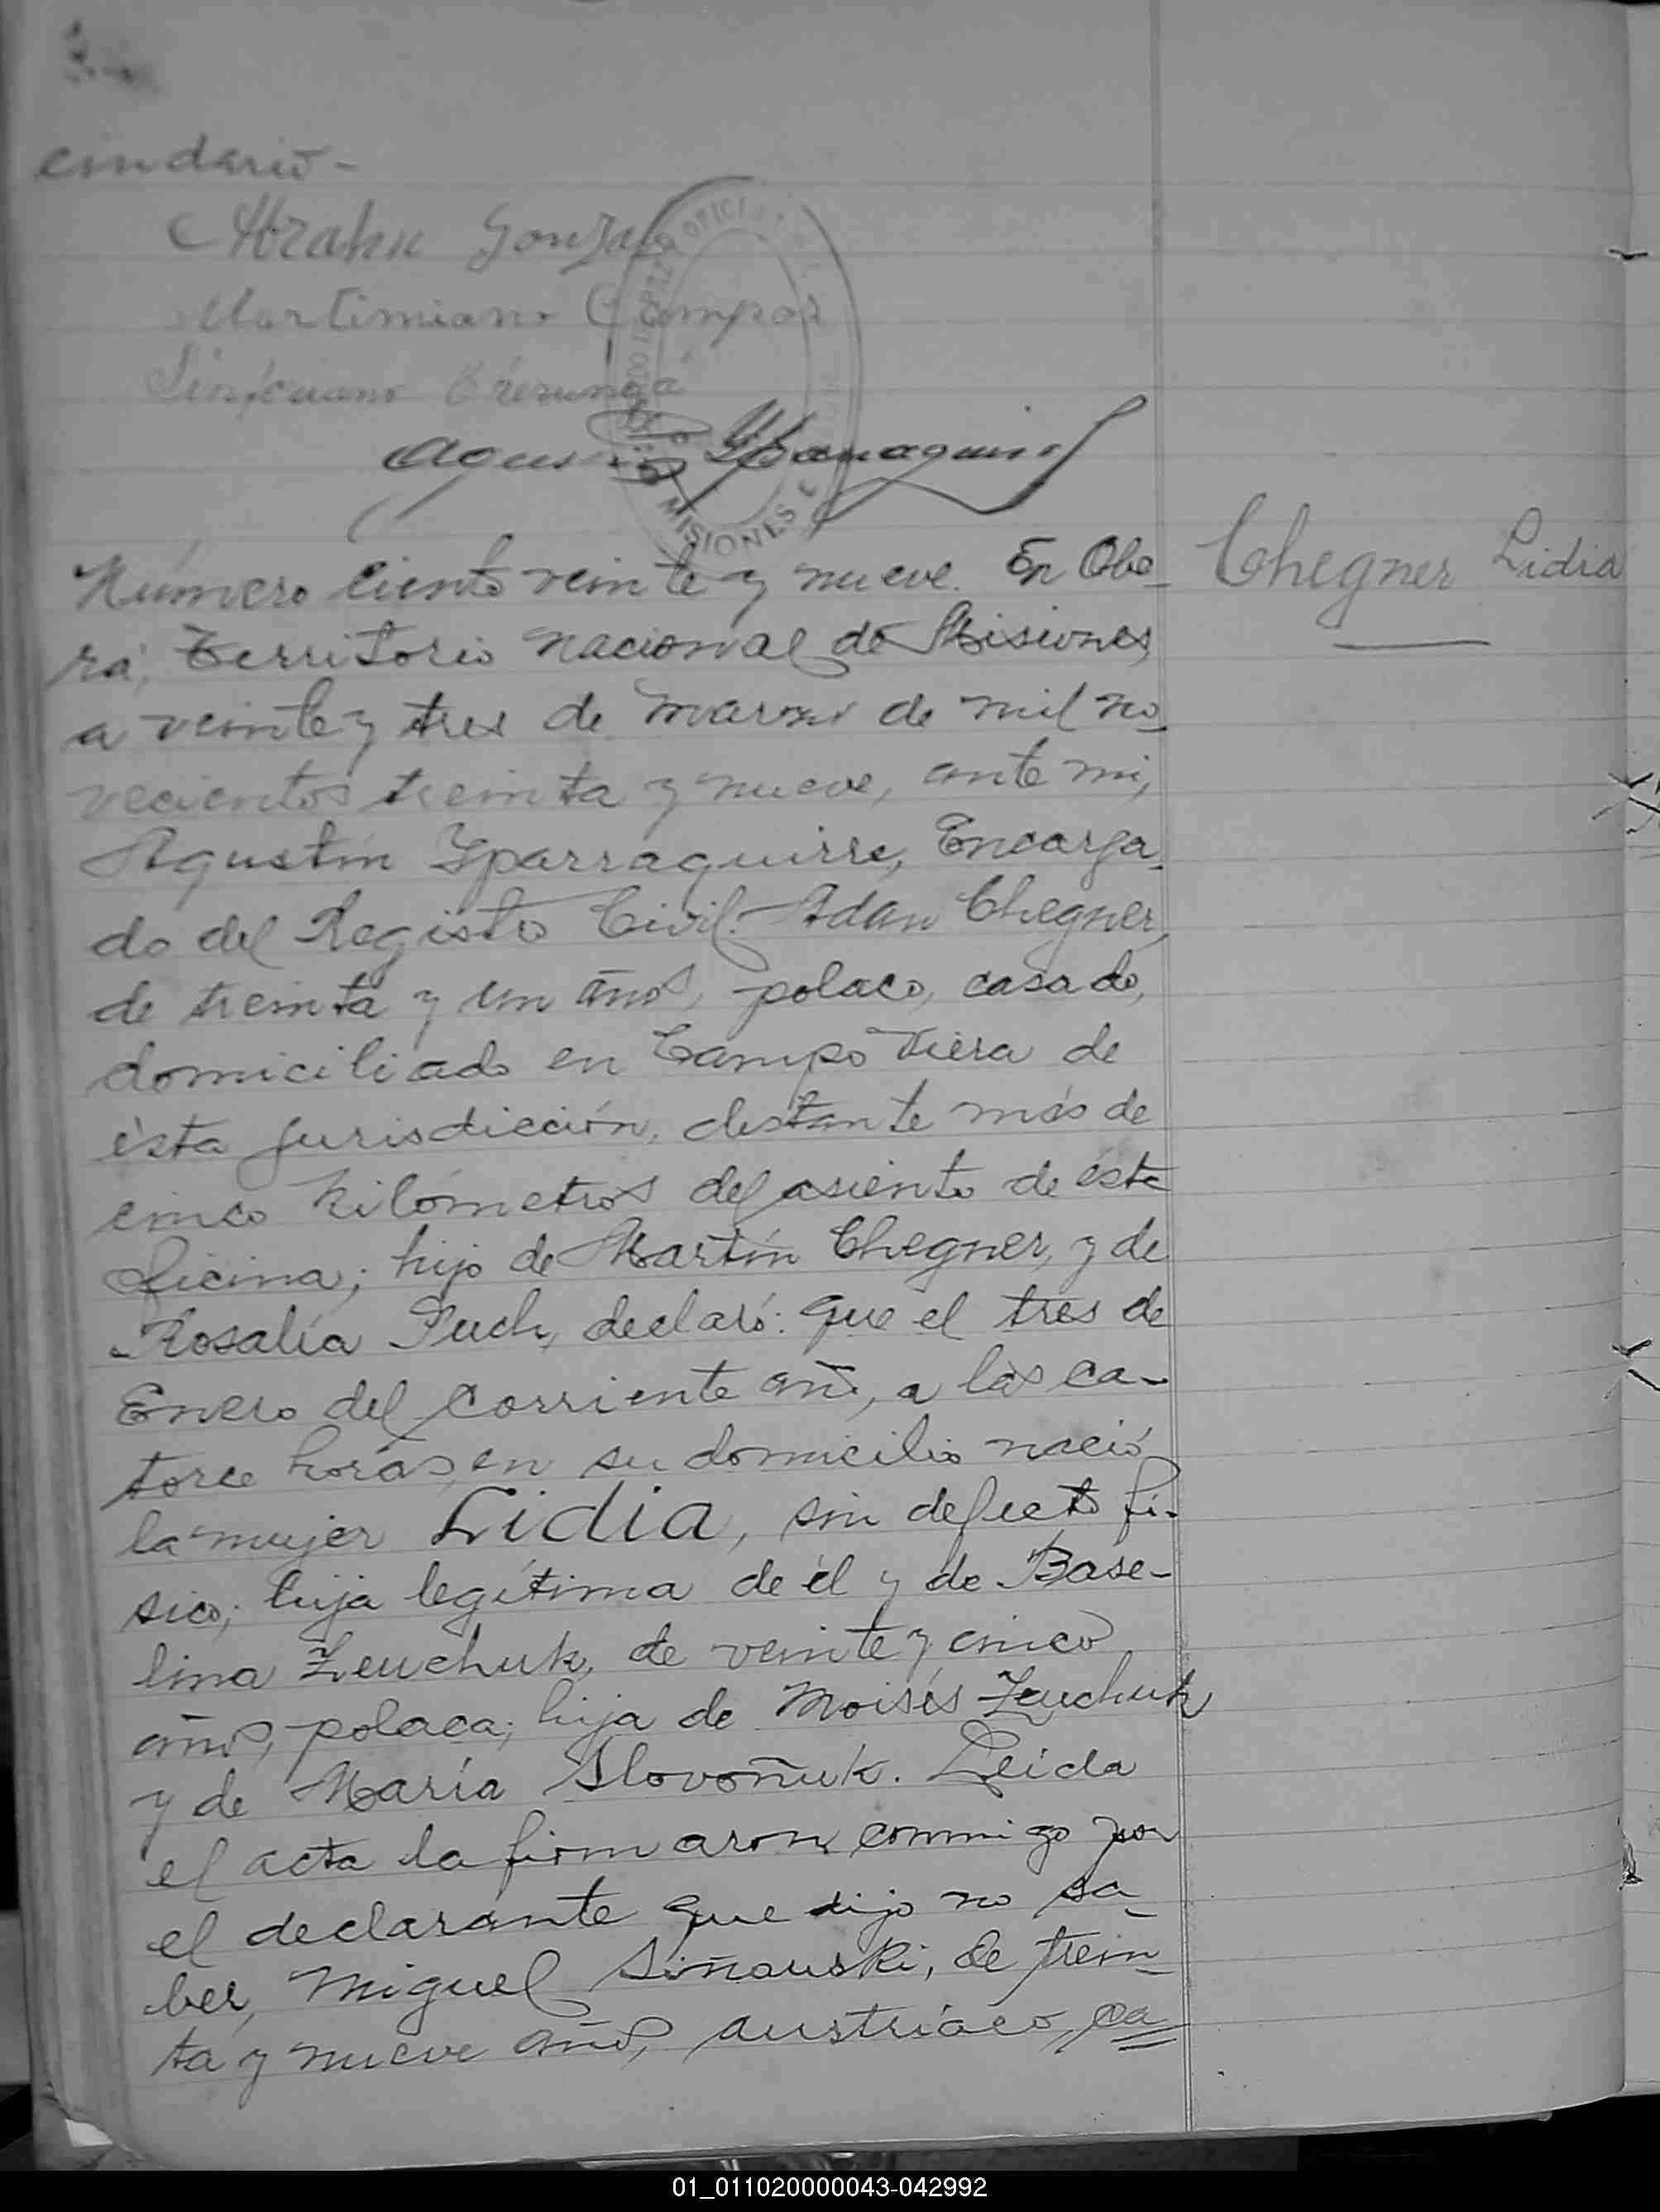 cindario -
Abrahn Gonzalez
Martimiano Campos
Agustín Yparraguirre
MISIONES
Número ciento veinte y nueve. En Obe-
rá, Territorio nacional de Misiones,
a veinte y tres de marzo de mil no-
vecientos treinta y nueve, ante mi,
Agustín Yparraguirre, Encarga-
do del Registro Civil. Adan Chegner,
de treinta y un años, polaco, casado,
domiciliado en Campo Viera de
ésta jurisdicción, distante más de
cinco kilómetros del asiento de ésta
Oficina; hijo de Martín Chegner, y de
Rosalía Puch, declaró: Que el tres de
Enero del corriente año, a las ca-
torce horas, en su domicilio nació
la mujer Lidia, sin defecto fí-
sico; hija legítima de él y de Base-
lina Zeuchuk, de veinte y cinco
años, polaca; hija de Moisés Zeuchuk
y de María Slovoñuk. Leída
el acta la firmaron conmigo por
el declarante que dijo no sa-
ber, Miguel Siñauski, de trein-
ta y nueve años, austríaco, ca
Chegner Lidia
01_011020000043-042992